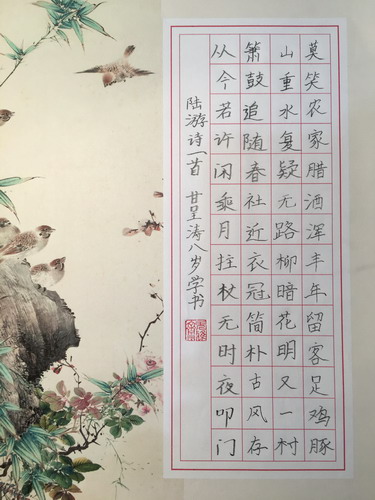 莫笑农家腊酒浑丰年留客足鸡豚
山重水复疑无路柳暗花明又一村
箫鼓追随春社近衣冠简朴古风存
从今若许闲乘月拄杖无时夜叩门
陆游诗一首 甘呈涛八岁学书